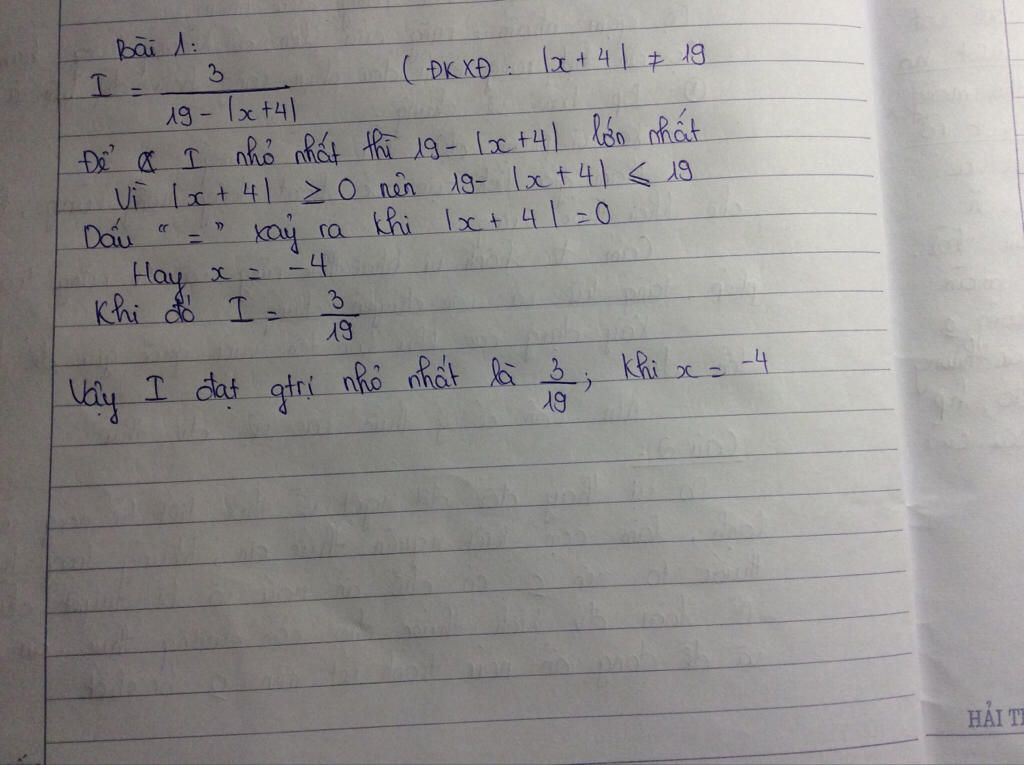 Bài 1:
I = 3 / (19 - |x+4|) ( ĐKXĐ : |x + 4| ≠ 19
Để I nhỏ nhất thì 19 - |x+4| lớn nhất
Vì |x + 4| ≥ 0 nên 19 - |x + 4| ≤ 19
Dấu " = " xảy ra khi |x + 4| = 0
Hay x = -4
Khi đó I = 3/19
Vậy I đạt gtrị nhỏ nhất là 3/19; khi x = -4
HẢI